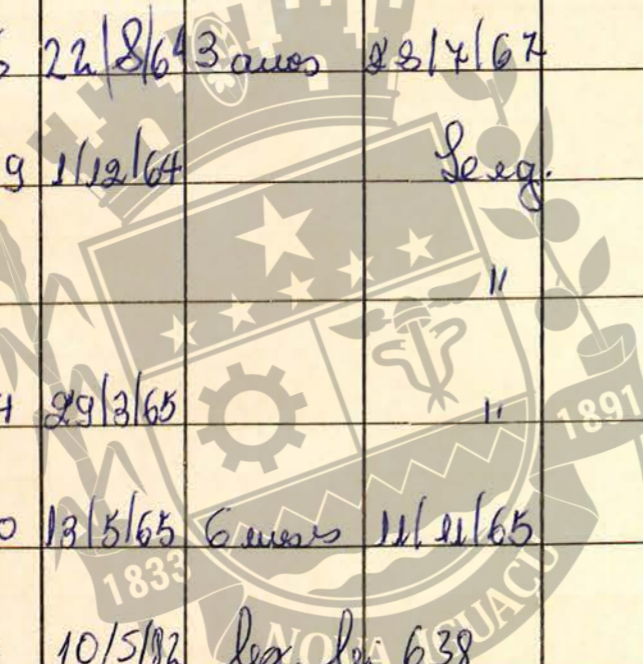 22/8/64 3 anos 28/7/67
9 1/12/64 Seeg.
"
29/3/65 "
0 13/5/65 6 meses 11/11/65
10/5/82 638
1833
1891
NOVA IGUAÇU